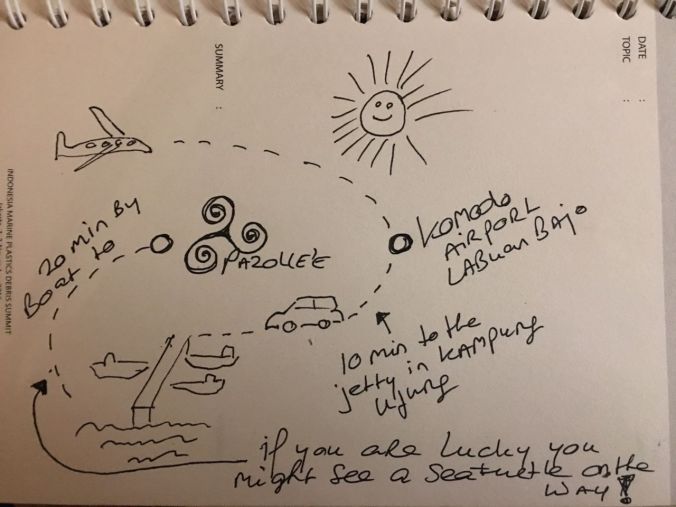 DATE :
TOPIC :
SUMMARY :
INDONESIA MARINE PLASTICS DEBRIS SUMMIT
KOMODO
AIRPORT
LABUAN BAJO
10 min to the
jetty in KAMPUNG
UJUNG
20 min By
Boat to
if you are Lucky you
might see a seaturtle on the
WAY!